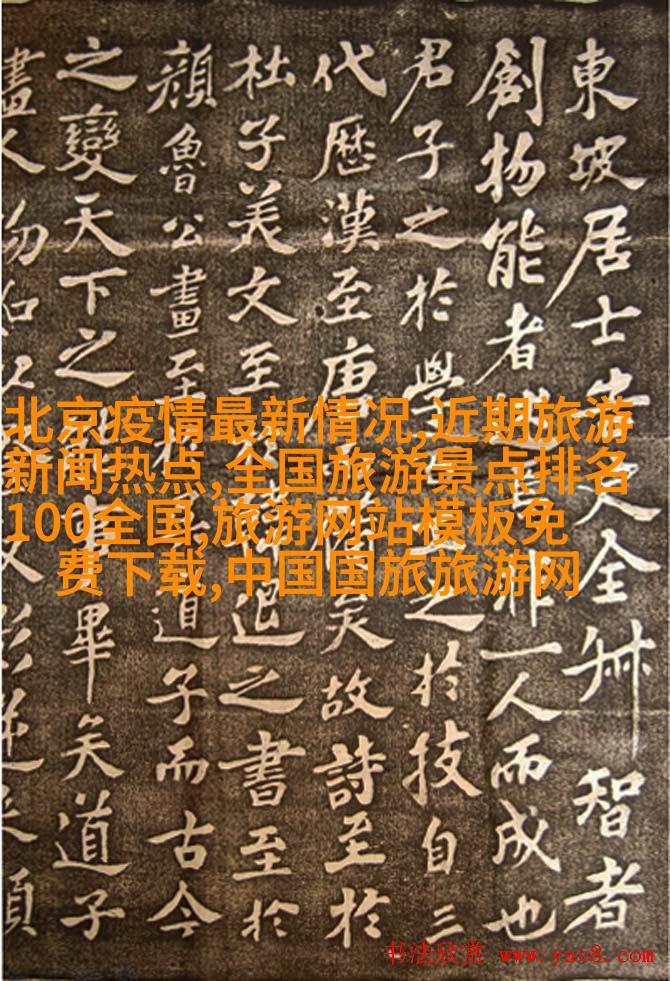 東坡居士全艸智者
創物能者非一人而成也
君子之於學之於技自三
代歷漢至唐備矣故詩至於
杜子美文至退之書至於
顏魯公畫至道子而古今
之變天下之事畢矣道子
畫人物如影逆來順
北京疫情最新情况,近期旅游
新闻热点,全国旅游景点排名
100全国,旅游网站模板免
费下载,中国国旅旅游网
书法欣赏 www.yac8.com